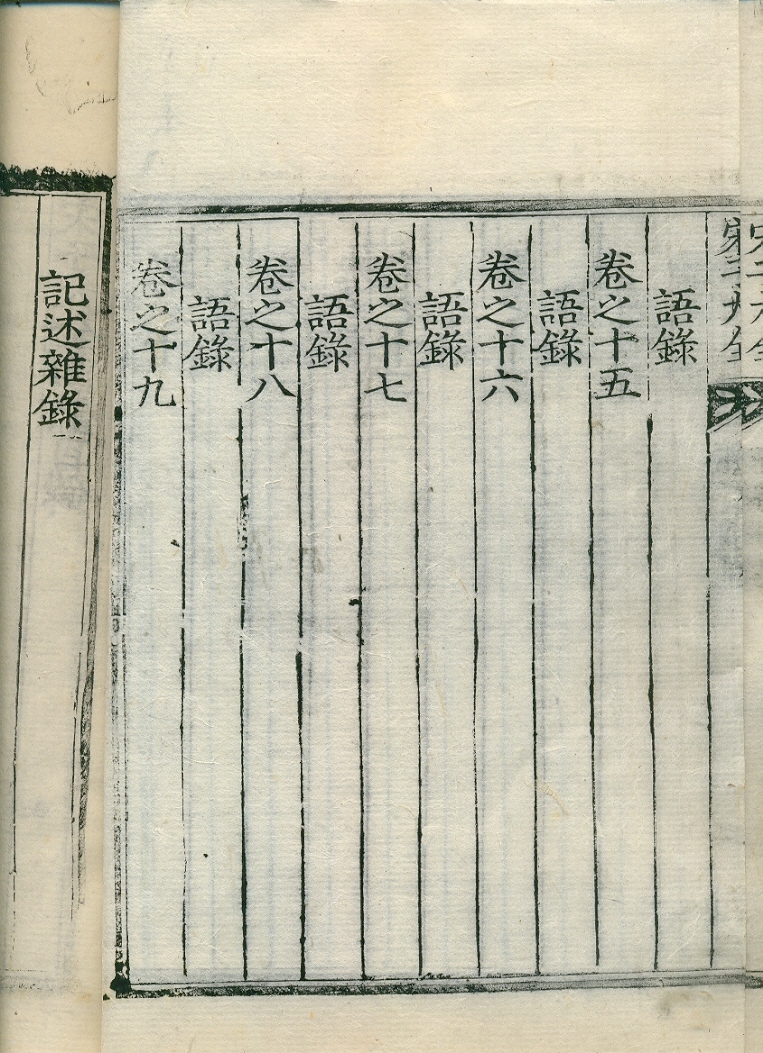 語錄
卷之十五
語錄
卷之十六
語錄
卷之十七
語錄
卷之十八
語錄
卷之十九
記述雜錄